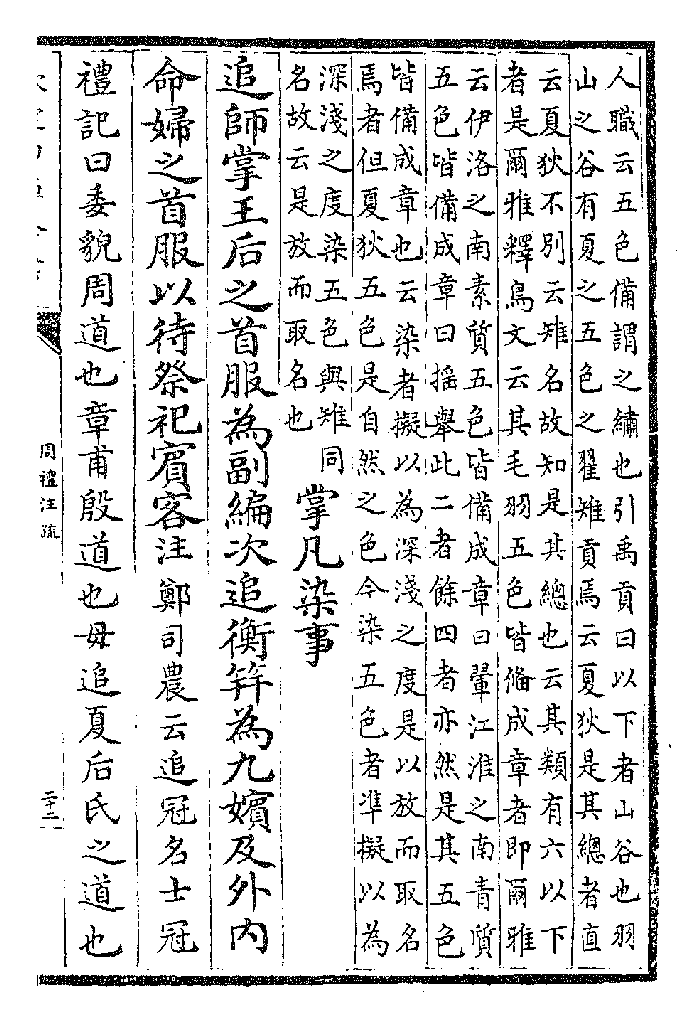 人職云五色備謂之繡也引禹貢曰以下者山谷也羽
山之谷有夏之五色之翟雉貢焉云夏狄是其總者直
云夏狄不別云雉名故知是其總也云其類有六以下
者是爾雅釋鳥文云其毛羽五色皆備成章者即爾雅
云伊洛之南素質五色皆備成章曰翬江淮之南青質
五色皆備成章曰搖舉此二者餘四者亦然是其五色
皆備成章也云染者擬以為深淺之度是以放而取名
焉者但夏狄五色是自然之色今染五色者準擬以為
深淺之度染五色與雉同
名故云是放而取名也
掌凡染事
追師掌王后之首服為副編次追衡笄為九嬪及外內
命婦之首服以待祭祀賓客注鄭司農云追冠名士冠
禮記曰委貌周道也章甫殷道也毋追夏后氏之道也
周禮注疏
二十二